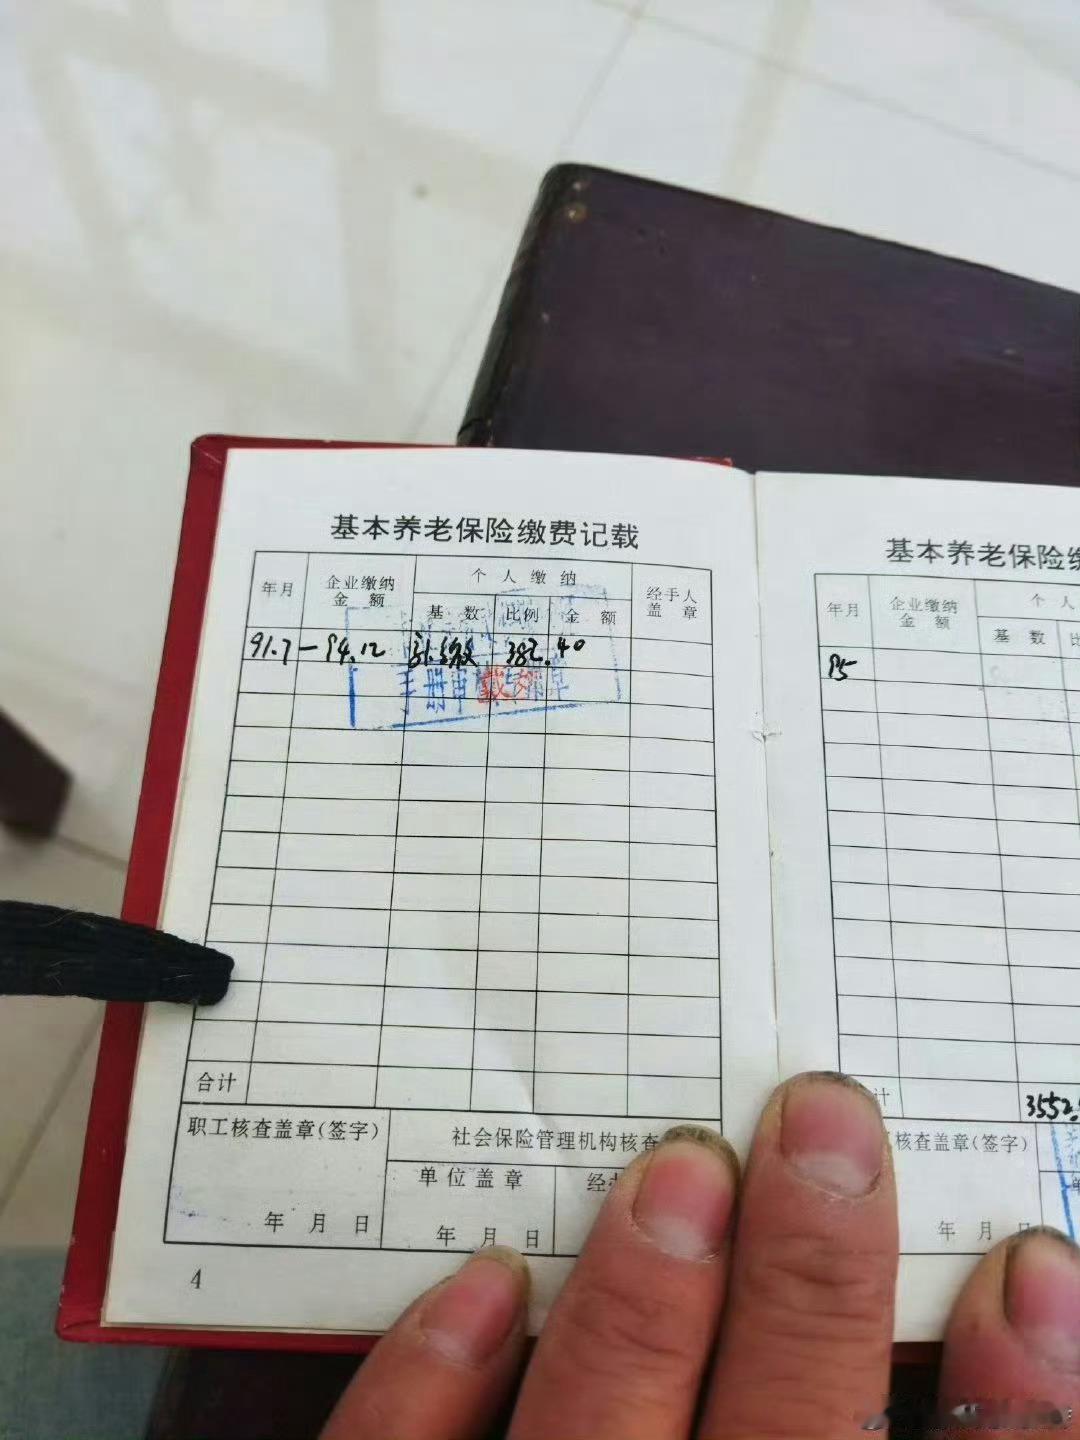 基本养老保险缴费记载
年月 企业缴纳金额 个人缴纳 经手人盖章
基数 比例 金额
91.7－94.12 382.40
手册审核专用章
合计
职工核查盖章(签字) 社会保险管理机构核查
单位盖章
年 月 日 年 月 日
4
基本养老保险
年月 企业缴纳金额 个人
基数
95
计 3552.
核查盖章(签字)
年 月